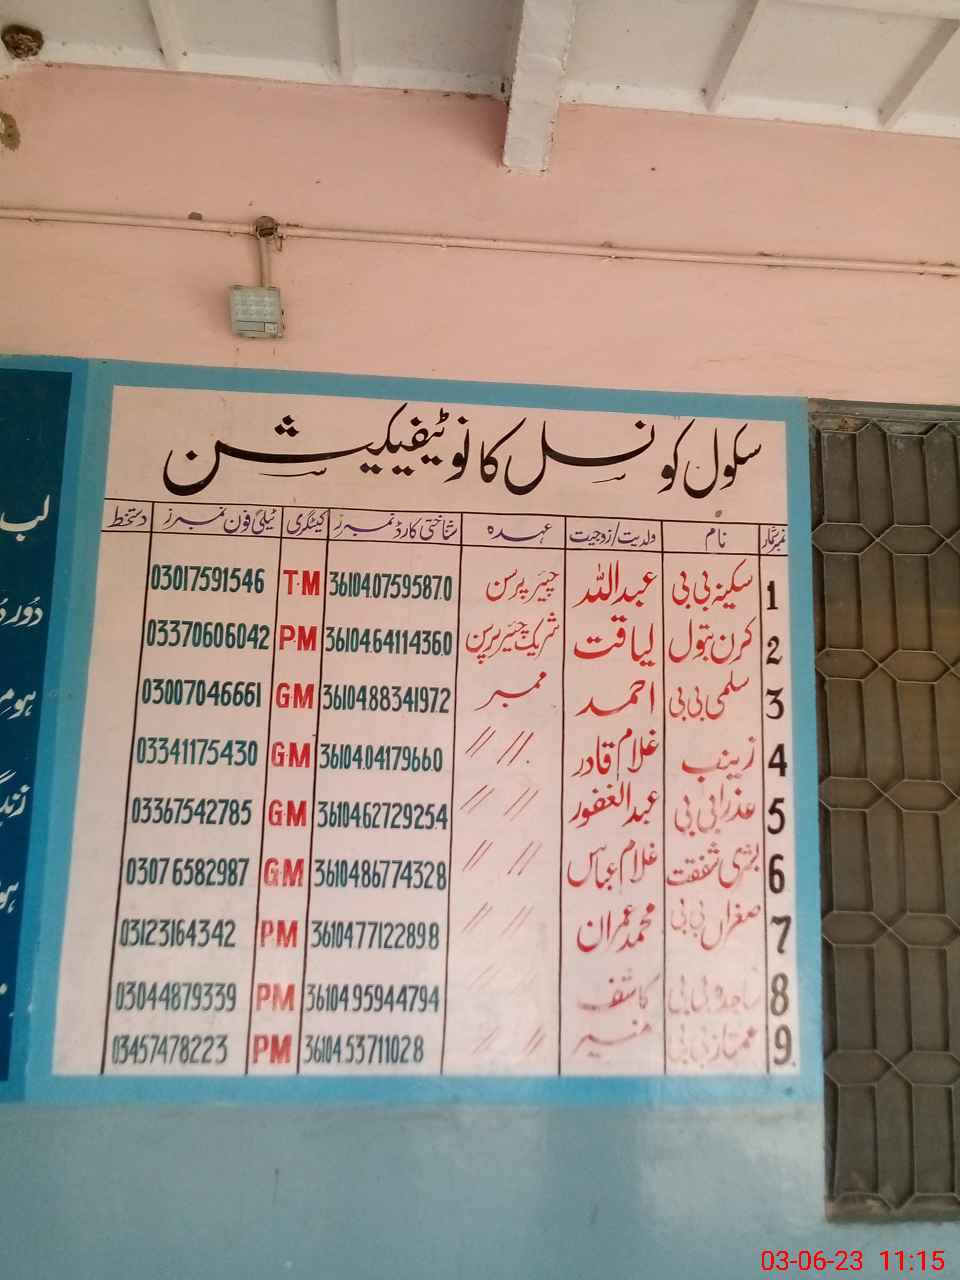 سکول کونسل کا نوٹیفیکیشن
نمبر شمار نام ولدیت/زوجیت عہدہ شناختی کارڈ نمبرز کیٹگری ٹیلی فون نمبرز دستخط
1 سکینہ بی بی عبداللہ چیئرپرسن 36104.0759587.0 T.M 03017591546
2 کرن بتول لیاقت شریک چیئرپرسن 36104.6411436.0 P.M 03370606042
3 سلمی بی بی احمد ممبر 36104.8834197.2 G.M 03007046661
4 زینب غلام قادر // // 36104.0417966.0 G.M 03341175430
5 عذرا بی بی عبدالغفور // // 36104.6272925.4 G.M 03367542785
6 بشری شفقت غلام عباس // // 36104.8677432.8 G.M 03076582987
7 صغراں بی بی محمد عمران // // 3610477122898 PM 03123164342
8 ساجدہ بی بی کاشف // // 36104.95944794 PM 03044879339
9 ممتاز بی بی منیر // // 36104.53711028 PM 03457478223
لب
03-06-23 11:15